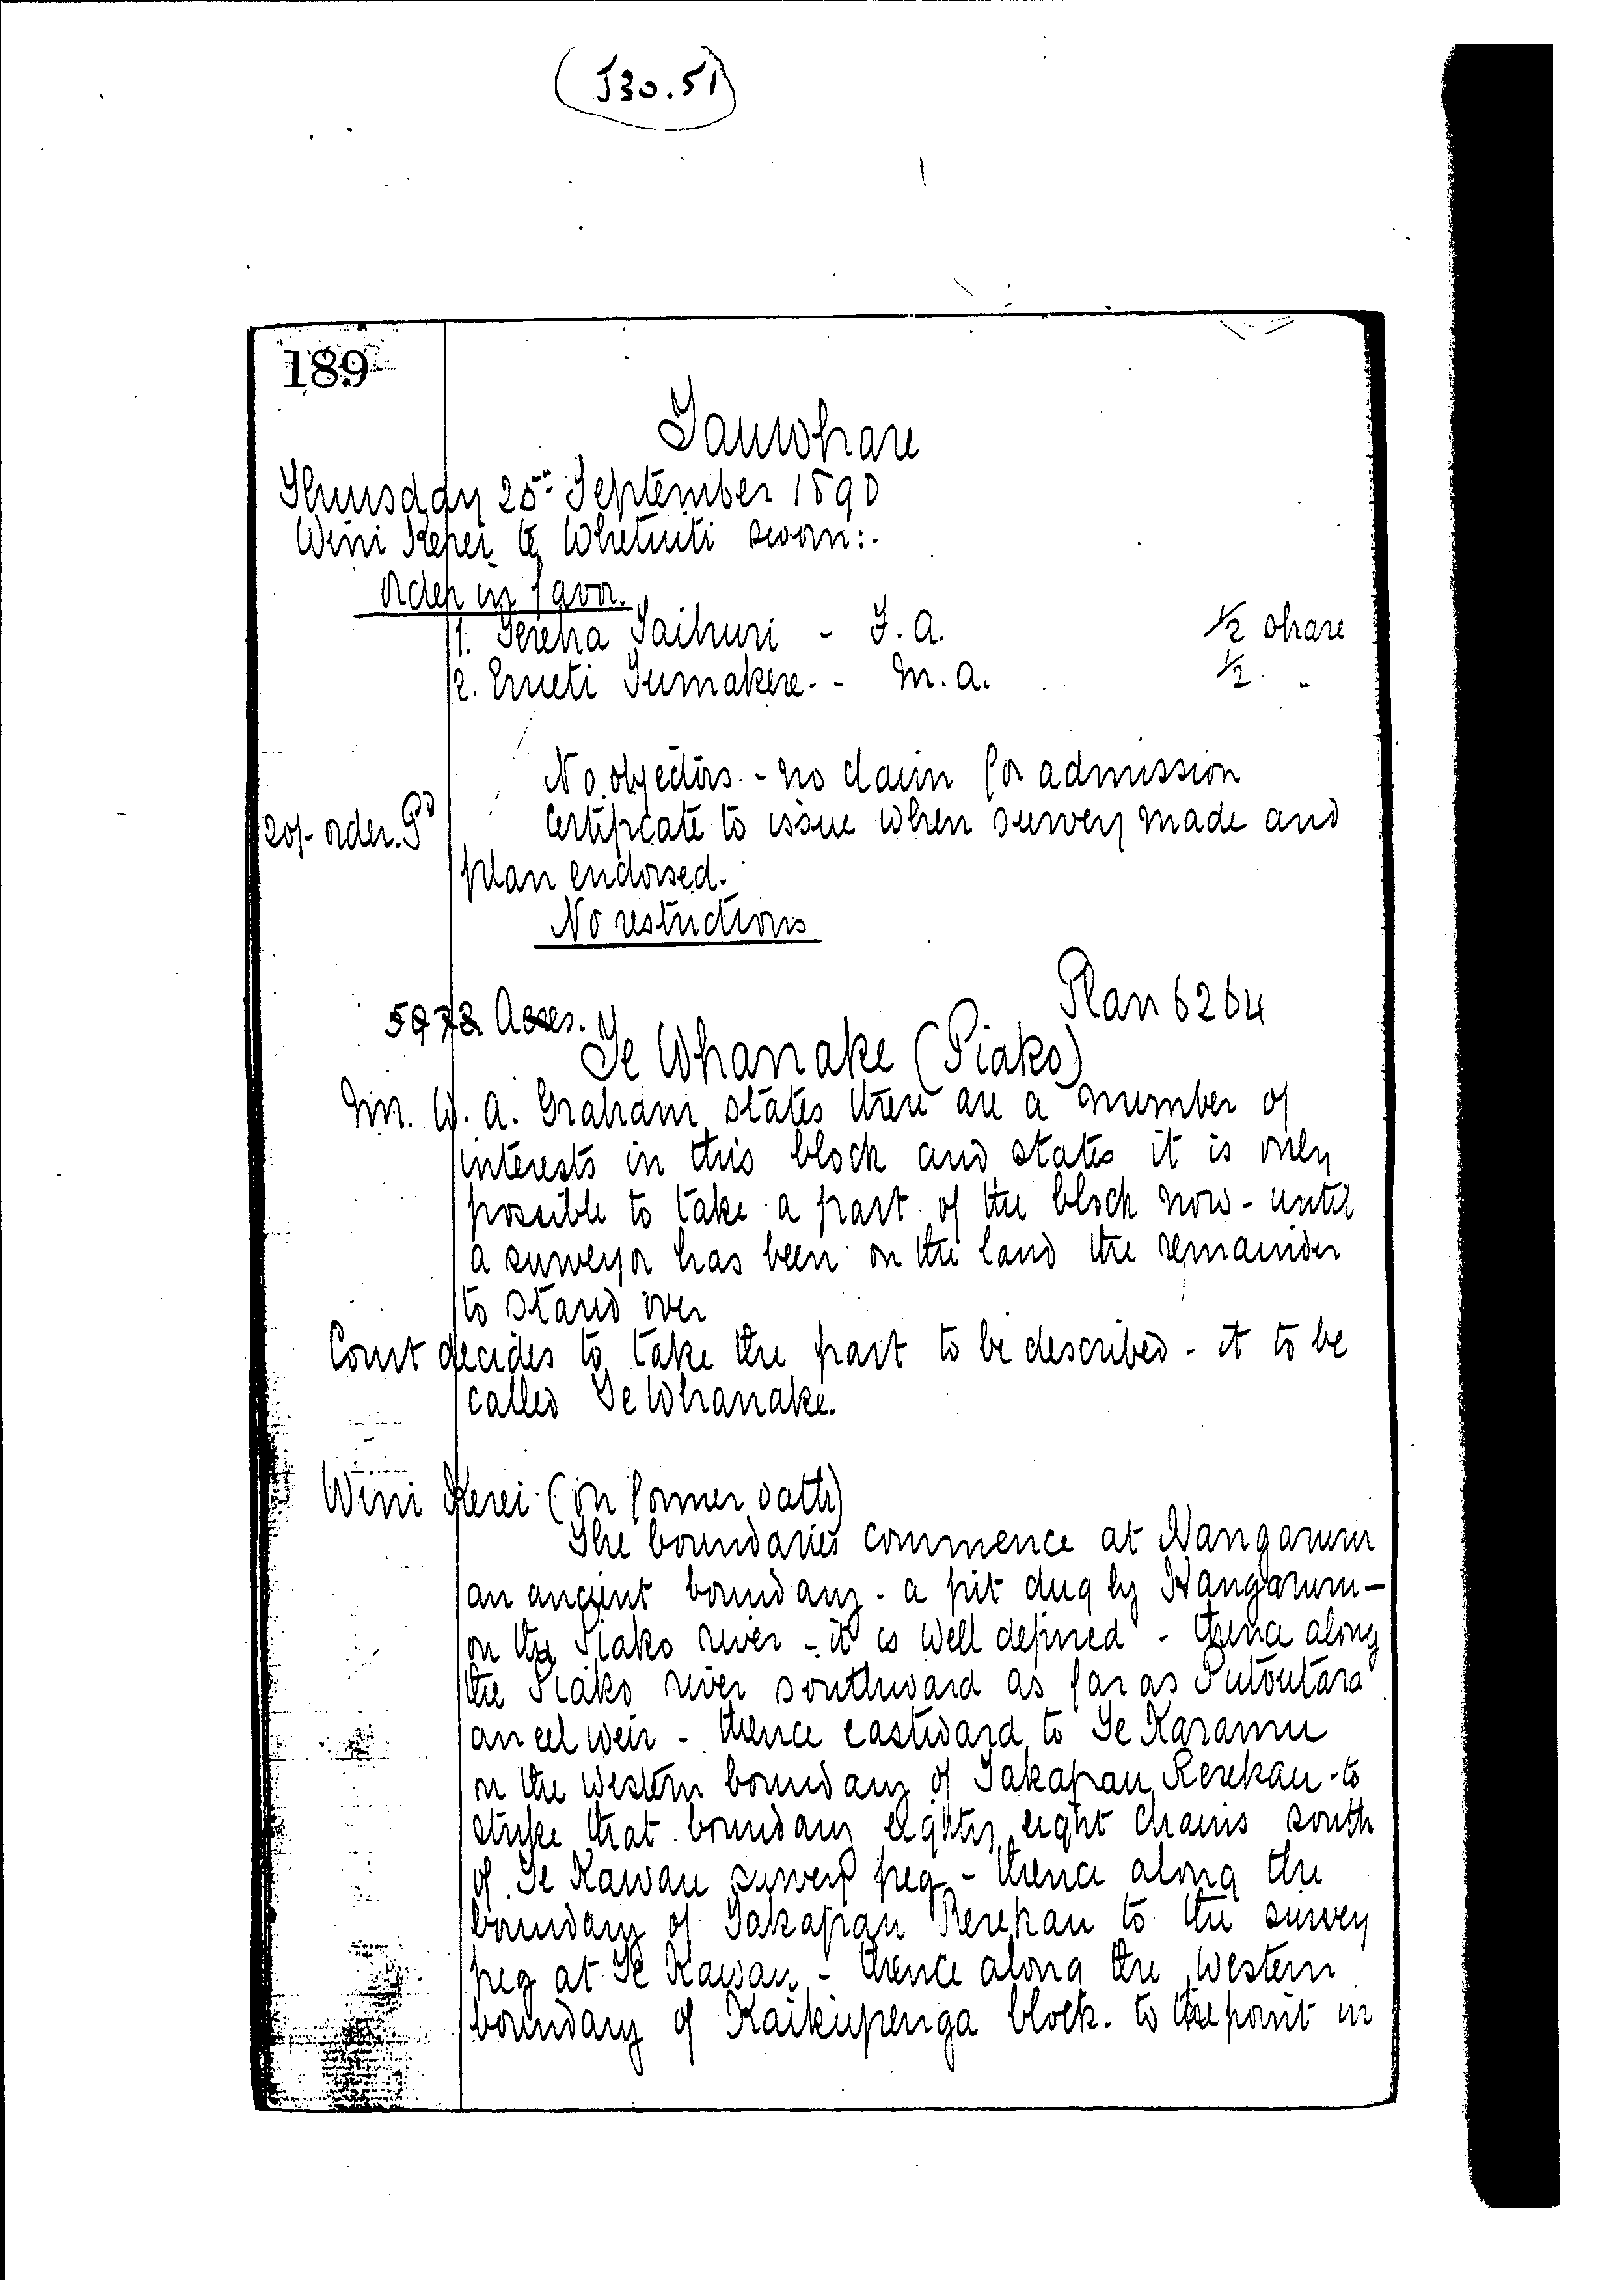 (J30.51)
189
Tauwhare
Thursday 25th September 1890
Wini Kerei te Whetuiti sworn:-
Order in favor.
1. Tereha Taihuri - F. A. 1/2 share
2. Erueti Tumakere - - M. A. 1/2 "
No objectors - no claim for admission
20/- order. Pd Certificate to issue when survey made and
plan endorsed.
No restrictions
Plan 6264
Acres.
Te Whanake (Piako)
Mr. W. A. Graham states there are a number of
interests in this block and states it is only
possible to take a part of the block now - until
a surveyor has been on the land the remainder
to stand over
Court decides to take the part to be described - it to be
called Te Whanake.
Wini Kerei (on former oath)
The boundaries commence at Hangarunu
an ancient boundary - a pit dug by Hangarunu -
on the Piako river - it is well defined - thence along
the Piako river southward as far as
an eel weir - thence eastward to Te Karamu
on the western boundary of Takapau Rerekau - to
strike that boundary eighty eight chains south
of Te Kawau survey peg - thence along the
boundary of Takapau Rerekau to the survey
peg at Te Kawau - thence along the western
boundary of Kaikupenga block. to the point in